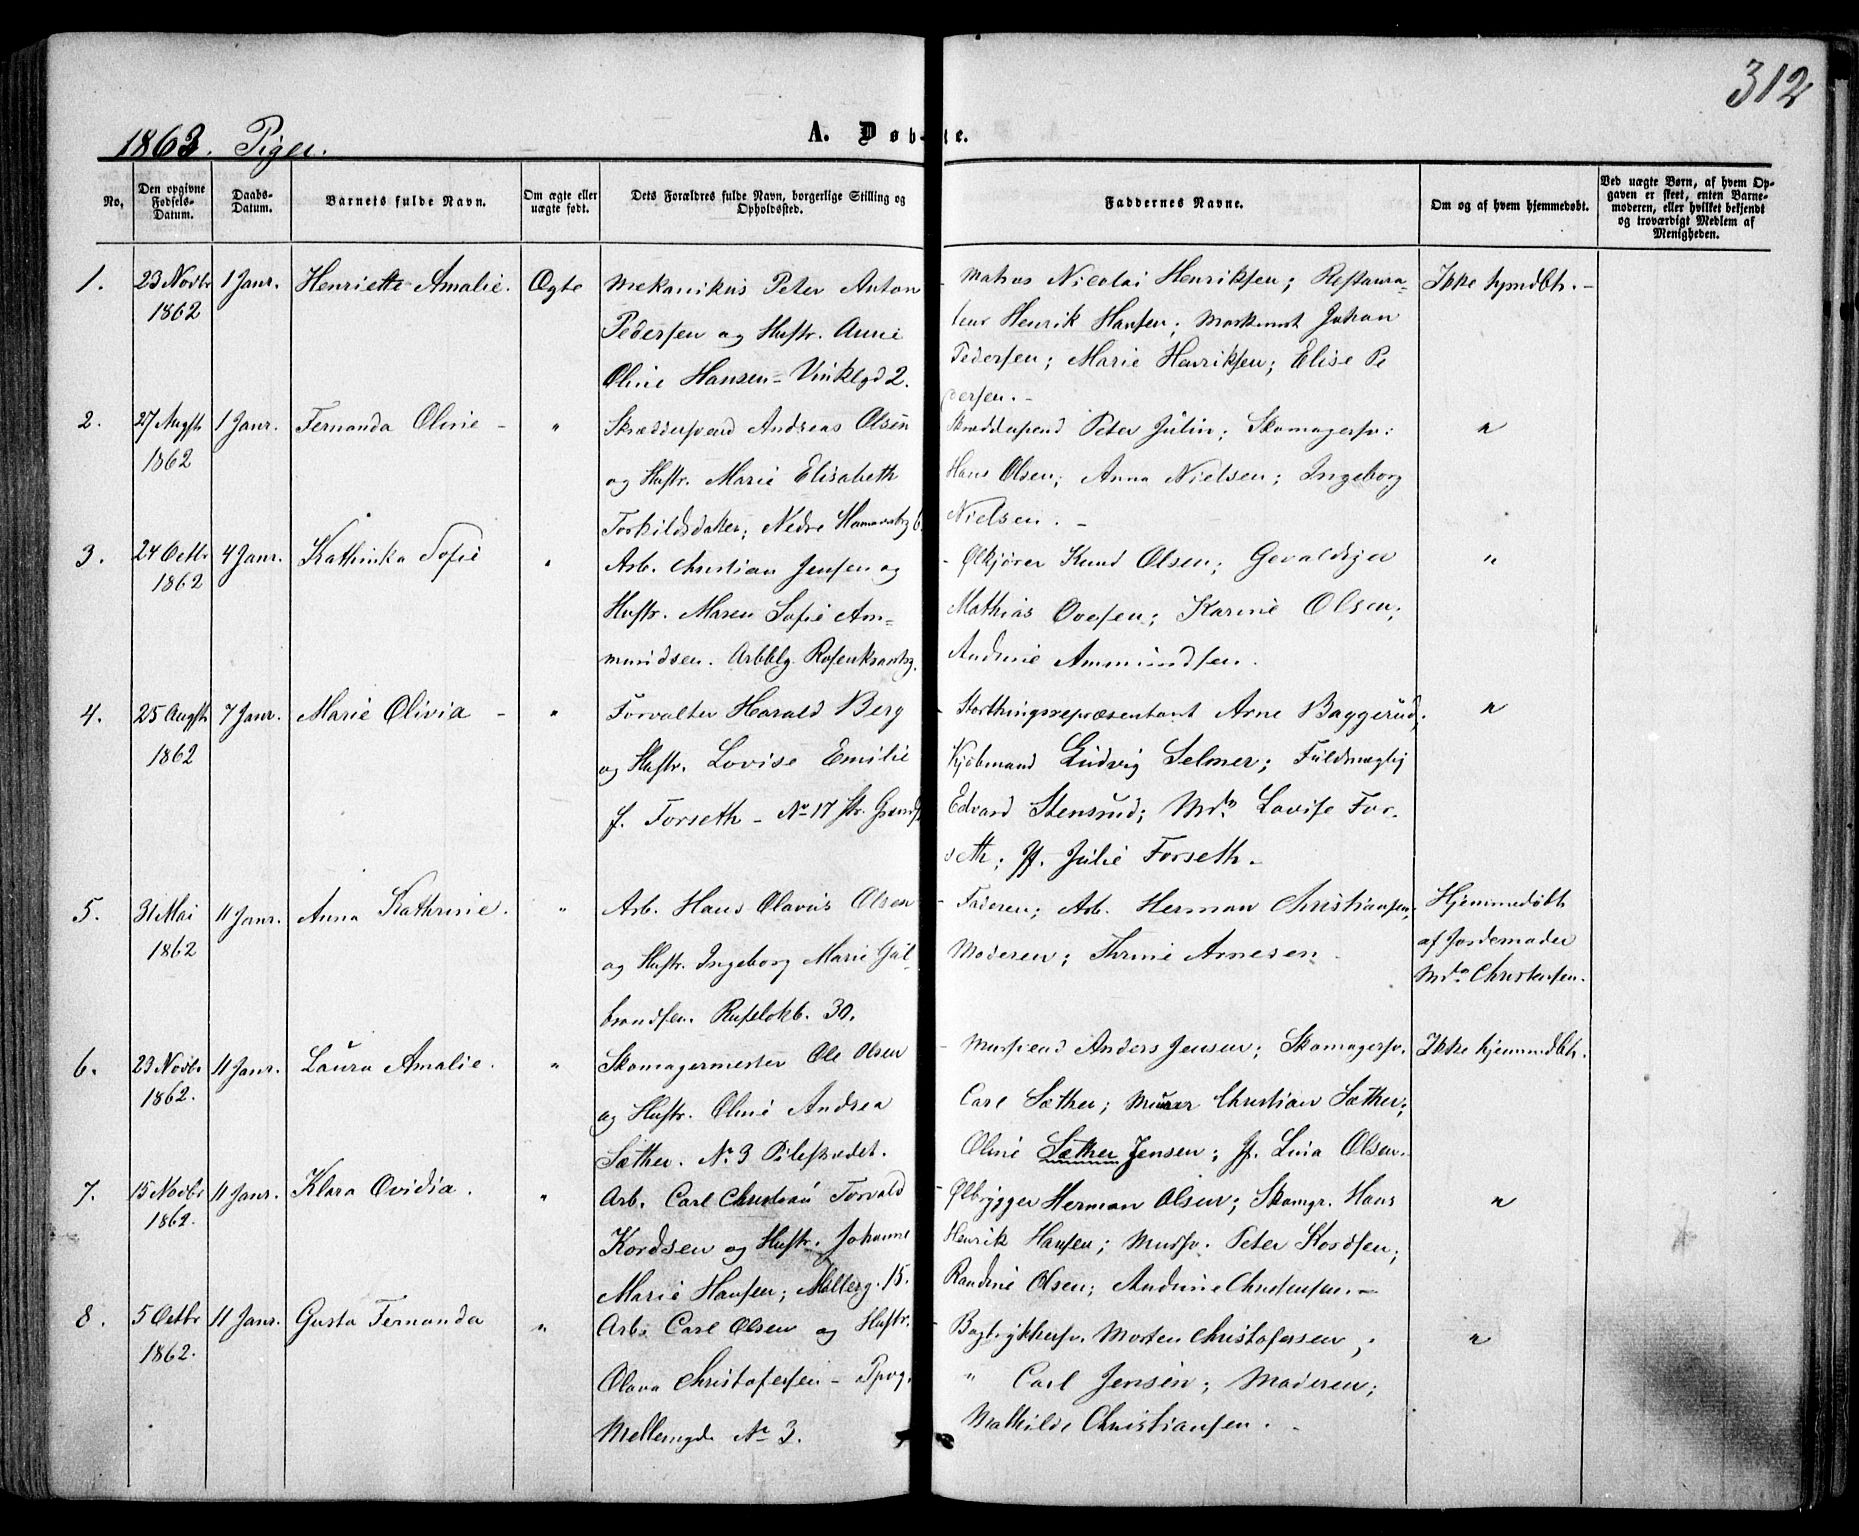 312
1863. Piger.
A. Døbte.
No.
Den opgivne Fødsels-Datum.
Daabs-Datum.
Barnets fulde Navn.
Om ægte eller uægte født.
Dets Forældres fulde Navn, borgerlige Stilling og Opholdssted.
Faddernes Navne.
Om og af hvem hjemmedøbt.
Ved uægte Børn, af hvem Opgaven er skeet, enten Barnemoderen, eller hvilket bekjendt og troværdigt Medlem af Menigheden.
1. 23 Novbr 1862 1 Janr. Henriette Amalie. Ægte
Mekanikus Peter Anton
Pedersen og Hustr. Anne
Oline Hansen - Vinklgd 2.
Matros Nicolai Henriksen; Restaura-
teur Henrik Hansen; Johan
Pedersen; Marie Henriksen; Elise Pe
dersen. -
Ikke hjmdbt. -
2. 27 Augst 1862 1 Janr. Fernanda Oline - "
Skræddersvend Andreas Olsen
og Hustr. Marie Elisabeth
Torkildsdatter; Nedre 6
Skræddersvend Peter Julin; Skomagersv:
Hans Olsen; Anna Nielsen; Ingeborg
Nielsen. -
"
3. 24 Octbr 1862 4 Janr. Kathinka Sofie "
Arb. Christian Jensen og
Hustr. Maren Sofie Am-
mundsen. Arbblg. Rosenkrantzg.
- Ølkjører Knud Olsen; Gevaldiger
Mathias Ovesen; Karine Olsen;
Andrine Ammundsen.
"
4. 25 Augst 1862 7 Janr. Marie Olivia - "
Forvalter Harald Berg
og Hustr. Lovise Emilie
f. Forseth - No 17 Str. Grænds
- Storthingsrepræsentant Arne Baggerud;
Kjøbmand Ludvig Selmer; Fuldmægtig
Edvard Stensrud; Md. Lovise For-
seth; Jf. Julie Forseth.
"
5. 31 Mai 1862 11 Janr. Anna Kathrine. "
Arb. Hans Olavus Olsen
og Hustr. Ingeborg Marie Gul-
brandsen. Ruselökb. 30.
- Faderen; Arb. Herman Christiansen;
Moderen; Thrine Arnesen.
Hjemmedøbt
af Jordemoder
Md. Christensen.
6. 23 Novbr 1862. 11 Janr. Laura Amalie. "
Skomagermester Ole Olsen
og Hustr. Oline Andrea
Sæther. No 3 Pilestrædet.
- Mursvend Anders Jensen; Skomagersv.
Carl Sæther; Murer Christian Sæther;
Oline Sæther Jensen; Jf. Lina Olsen.
Ikke hjemmedbt.
7. 15 Novbr 1862. 11 Janr. Klara Ovidia. "
Arb. Carl Christian Torvald
Kordsen og Hustr. Johanne
Marie Hansen; Mølberg. 15.
- Ølbrygger Herman Olsen; Skomgr. Hans
Henrik Hansen; Mursv. Peter Kordsen;
Randine Olsen; Andrine Christensen. -
"
8. 5 Octbr 1862. 11 Janr. Gusta Fernanda "
Arb. Carl Olsen og Hustr.
Olava Christofersen - Ppvg.
Mellemgd. No 3.
- Morten Christofersen;
" Carl Jensen; Moderen;
Mathilde Christiansen. -
"